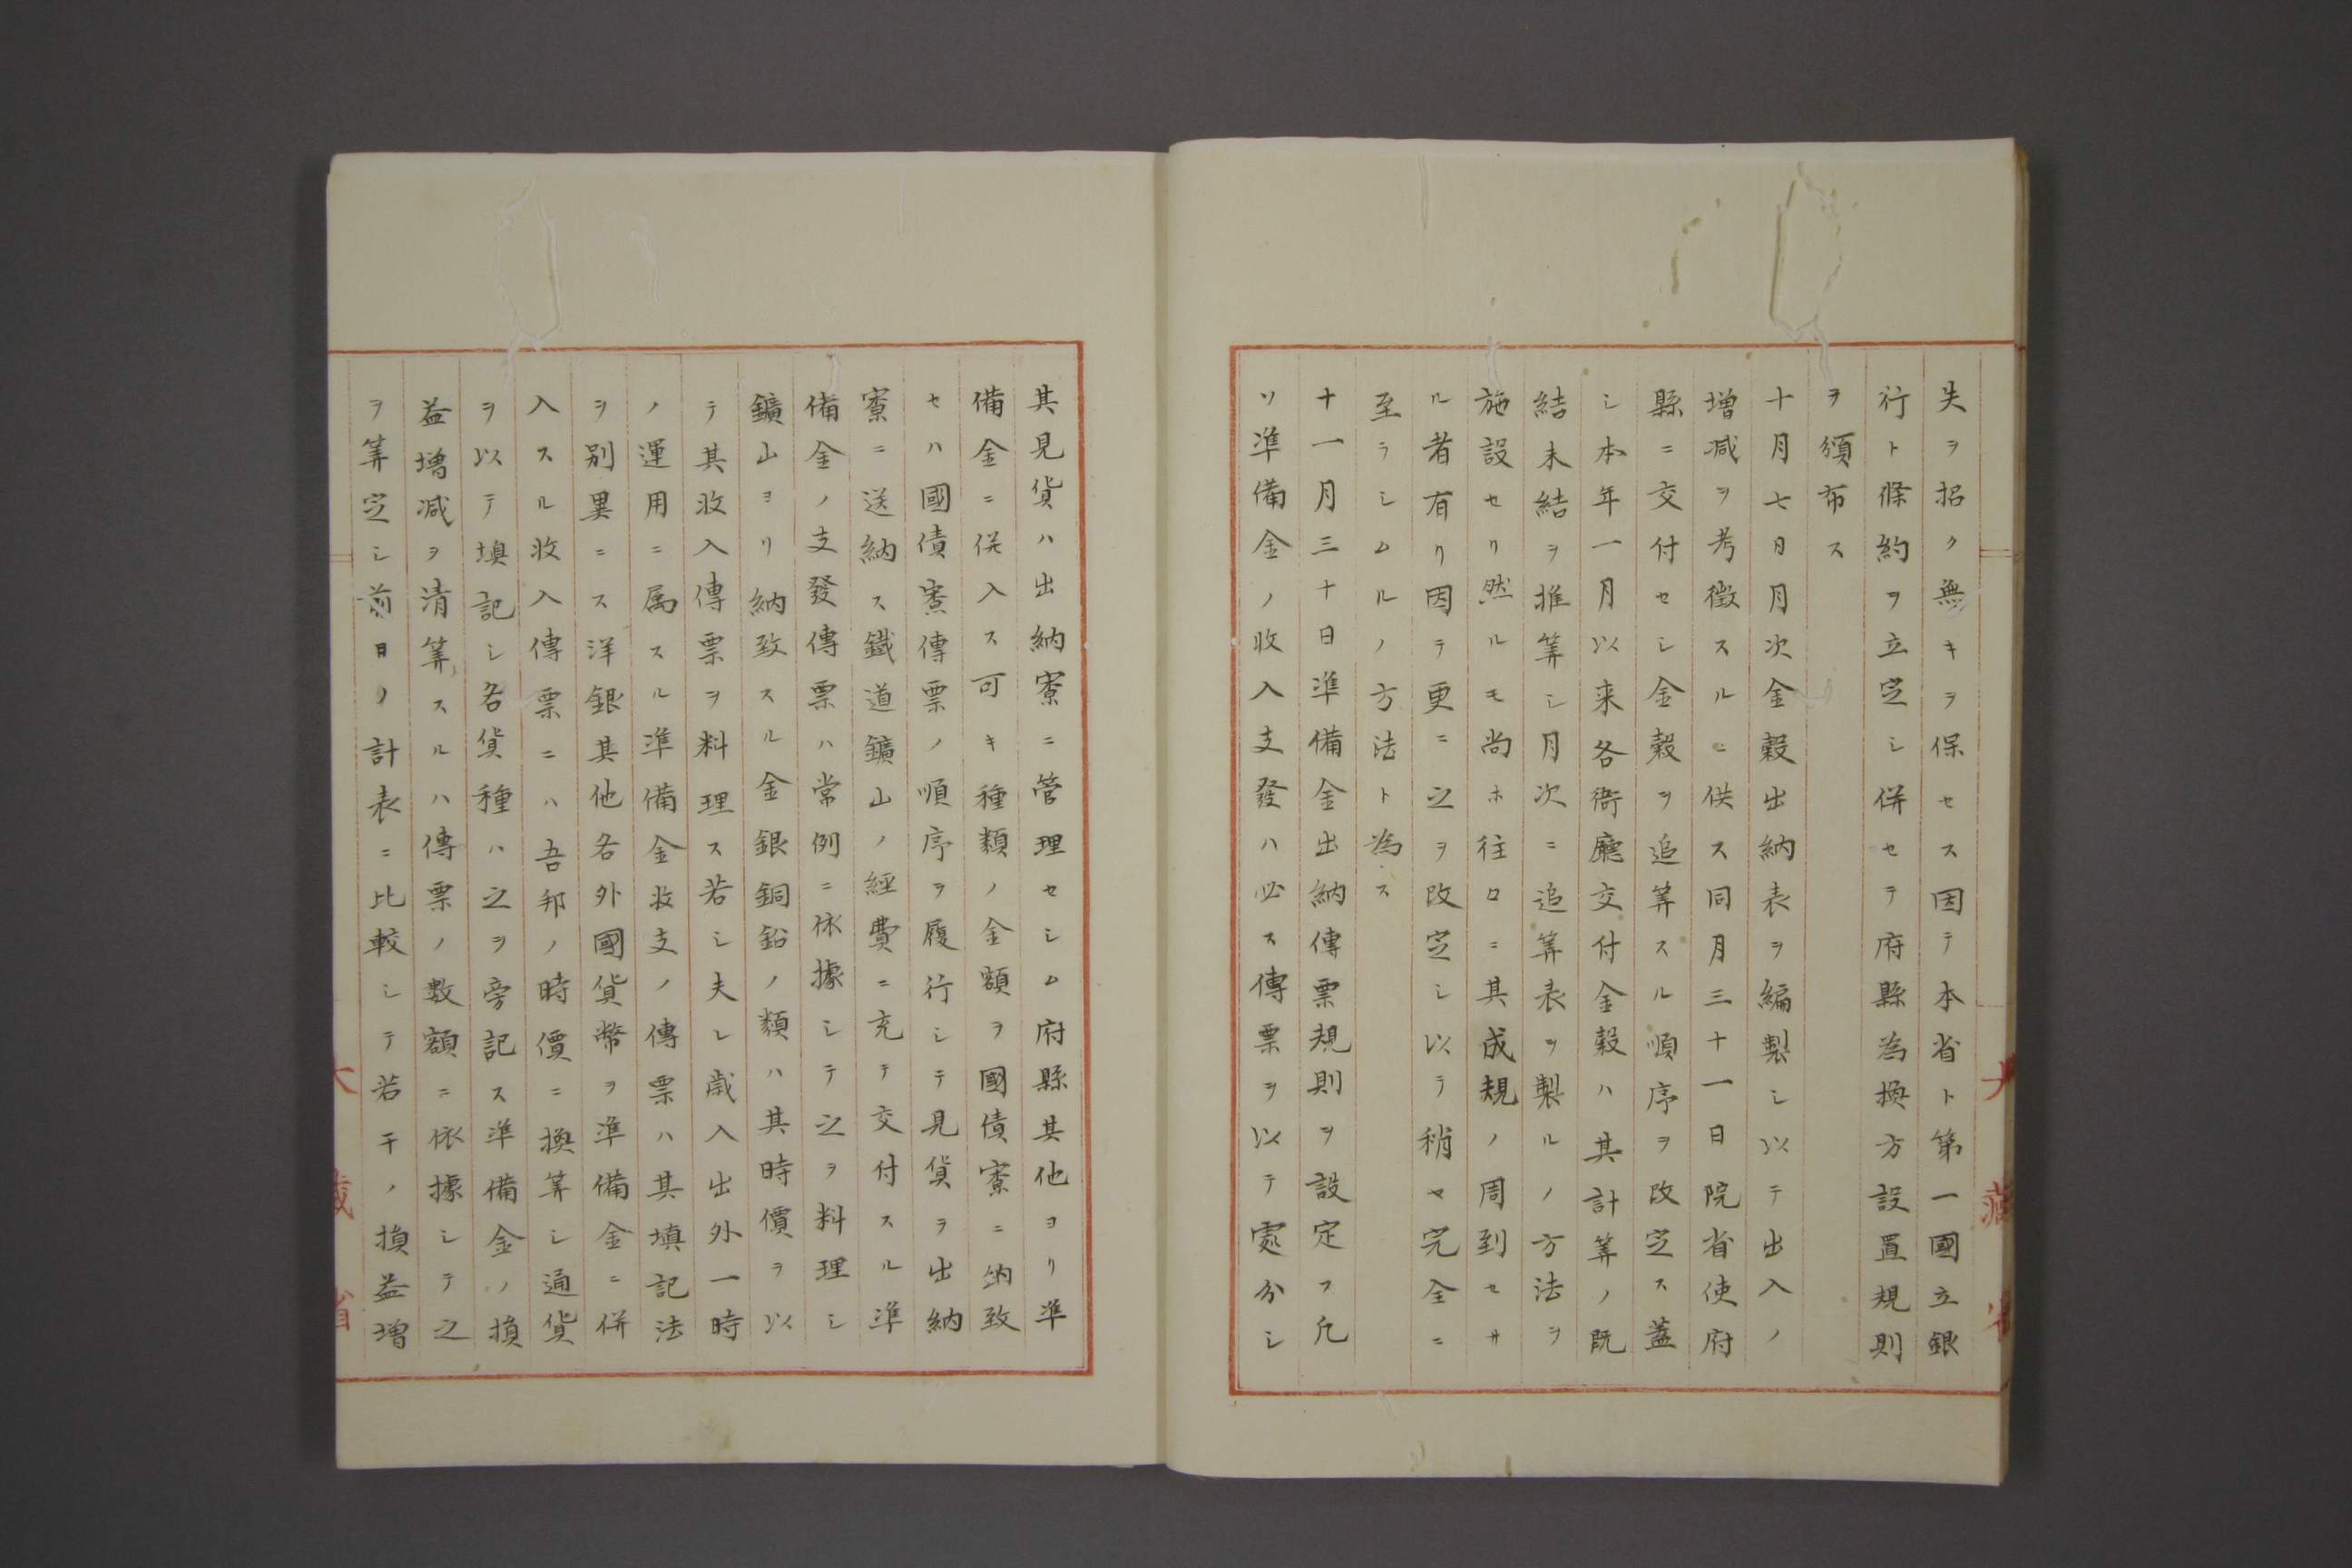 失ヲ招ク無キヲ保セス因テ本省ト第一國立銀
行ト條約ヲ立定シ併セテ府縣為換方設置規則
ヲ頒布ス
十月七日月次金穀出納表ヲ編製シ以テ出入ノ
増減ヲ考徴スルニ供ス同月三十一日院省使府
縣ニ交付セシ金穀ヲ追筭スル順序ヲ改定ス蓋
シ本年一月以来各衙廳交付金穀ハ其計筭ノ既
結未結ヲ推筭シ月次ニ追筭表ヲ製ルノ方法ヲ
施設セリ然ルモ尚ホ往ロニ其成規ノ周到セサ
ル者有リ因テ更ニ之ヲ改定シ以テ稍ヤ完全ニ
至ラシムルノ方法ト為ス
十一月三十日準備金出納傳票規則ヲ設定ス凡
ソ準備金ノ收入支發ハ必ス傳票ヲ以テ處分シ
其見貨ハ出納寮ニ管理セシム府縣其他ヨリ準
備金ニ併入ス可キ種類ノ金額ヲ國債寮ニ納致
セハ國債寮傳票ノ順序ヲ履行シテ見貨ヲ出納
寮ニ送納ス鐵道鑛山ノ經費ニ充テ交付スル準
備金ノ支發傳票ハ常例ニ依據シテ之ヲ料理シ
鑛山ヨリ納致スル金銀銅鉛ノ類ハ其時價ヲ以
テ其收入傳票ヲ料理ス若シ夫レ歳入出外一時
ノ運用ニ属スル準備金收支ノ傳票ハ其填記法
ヲ別異ニス洋銀其他各外國貨幣ヲ準備金ニ併
入スル收入傳票ニハ吾邦ノ時價ニ換筭シ通貨
ヲ以テ填記シ各貨種ハ之ヲ旁記ス準備金ノ損
益増減ヲ清筭スルハ傳票ノ數額ニ依據シテ之
ヲ筭定シ前日ノ計表ニ比較シテ若干ノ損益増
大藏省
大藏省